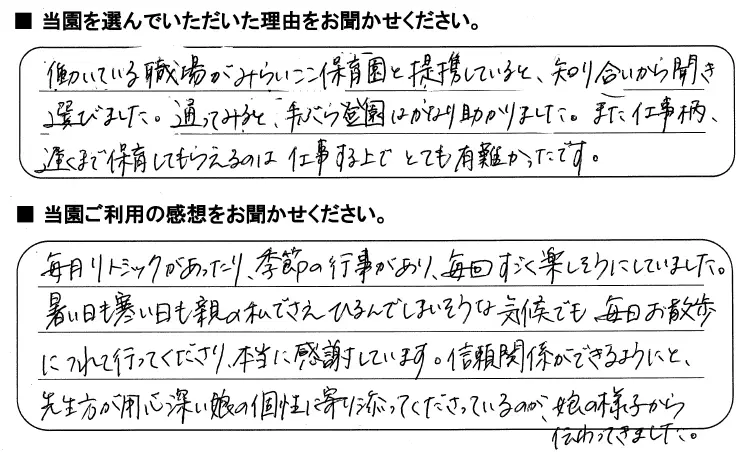 ■ 当園を選んでいただいた理由をお聞かせください。
働いている職場がみらいここ保育園と提携していると、知り合いから聞き
選びました。通ってみると、手ぶら登園はかなり助かりました。また仕事柄、
遅くまで保育してもらえるのは仕事する上でとても有難かったです。
■ 当園ご利用の感想をお聞かせください。
毎月リトミックがあったり、季節の行事があり、毎回すごく楽しそうにしていました。
暑い日も寒い日も親の私でさえひるんでしまいそうな気候でも、毎日お散歩
につれて行ってくださり、本当に感謝しています。信頼関係ができるようにと、
先生方が用心深い娘の個性に寄り添ってくださっているのが、娘の様子から
伝わってきました。